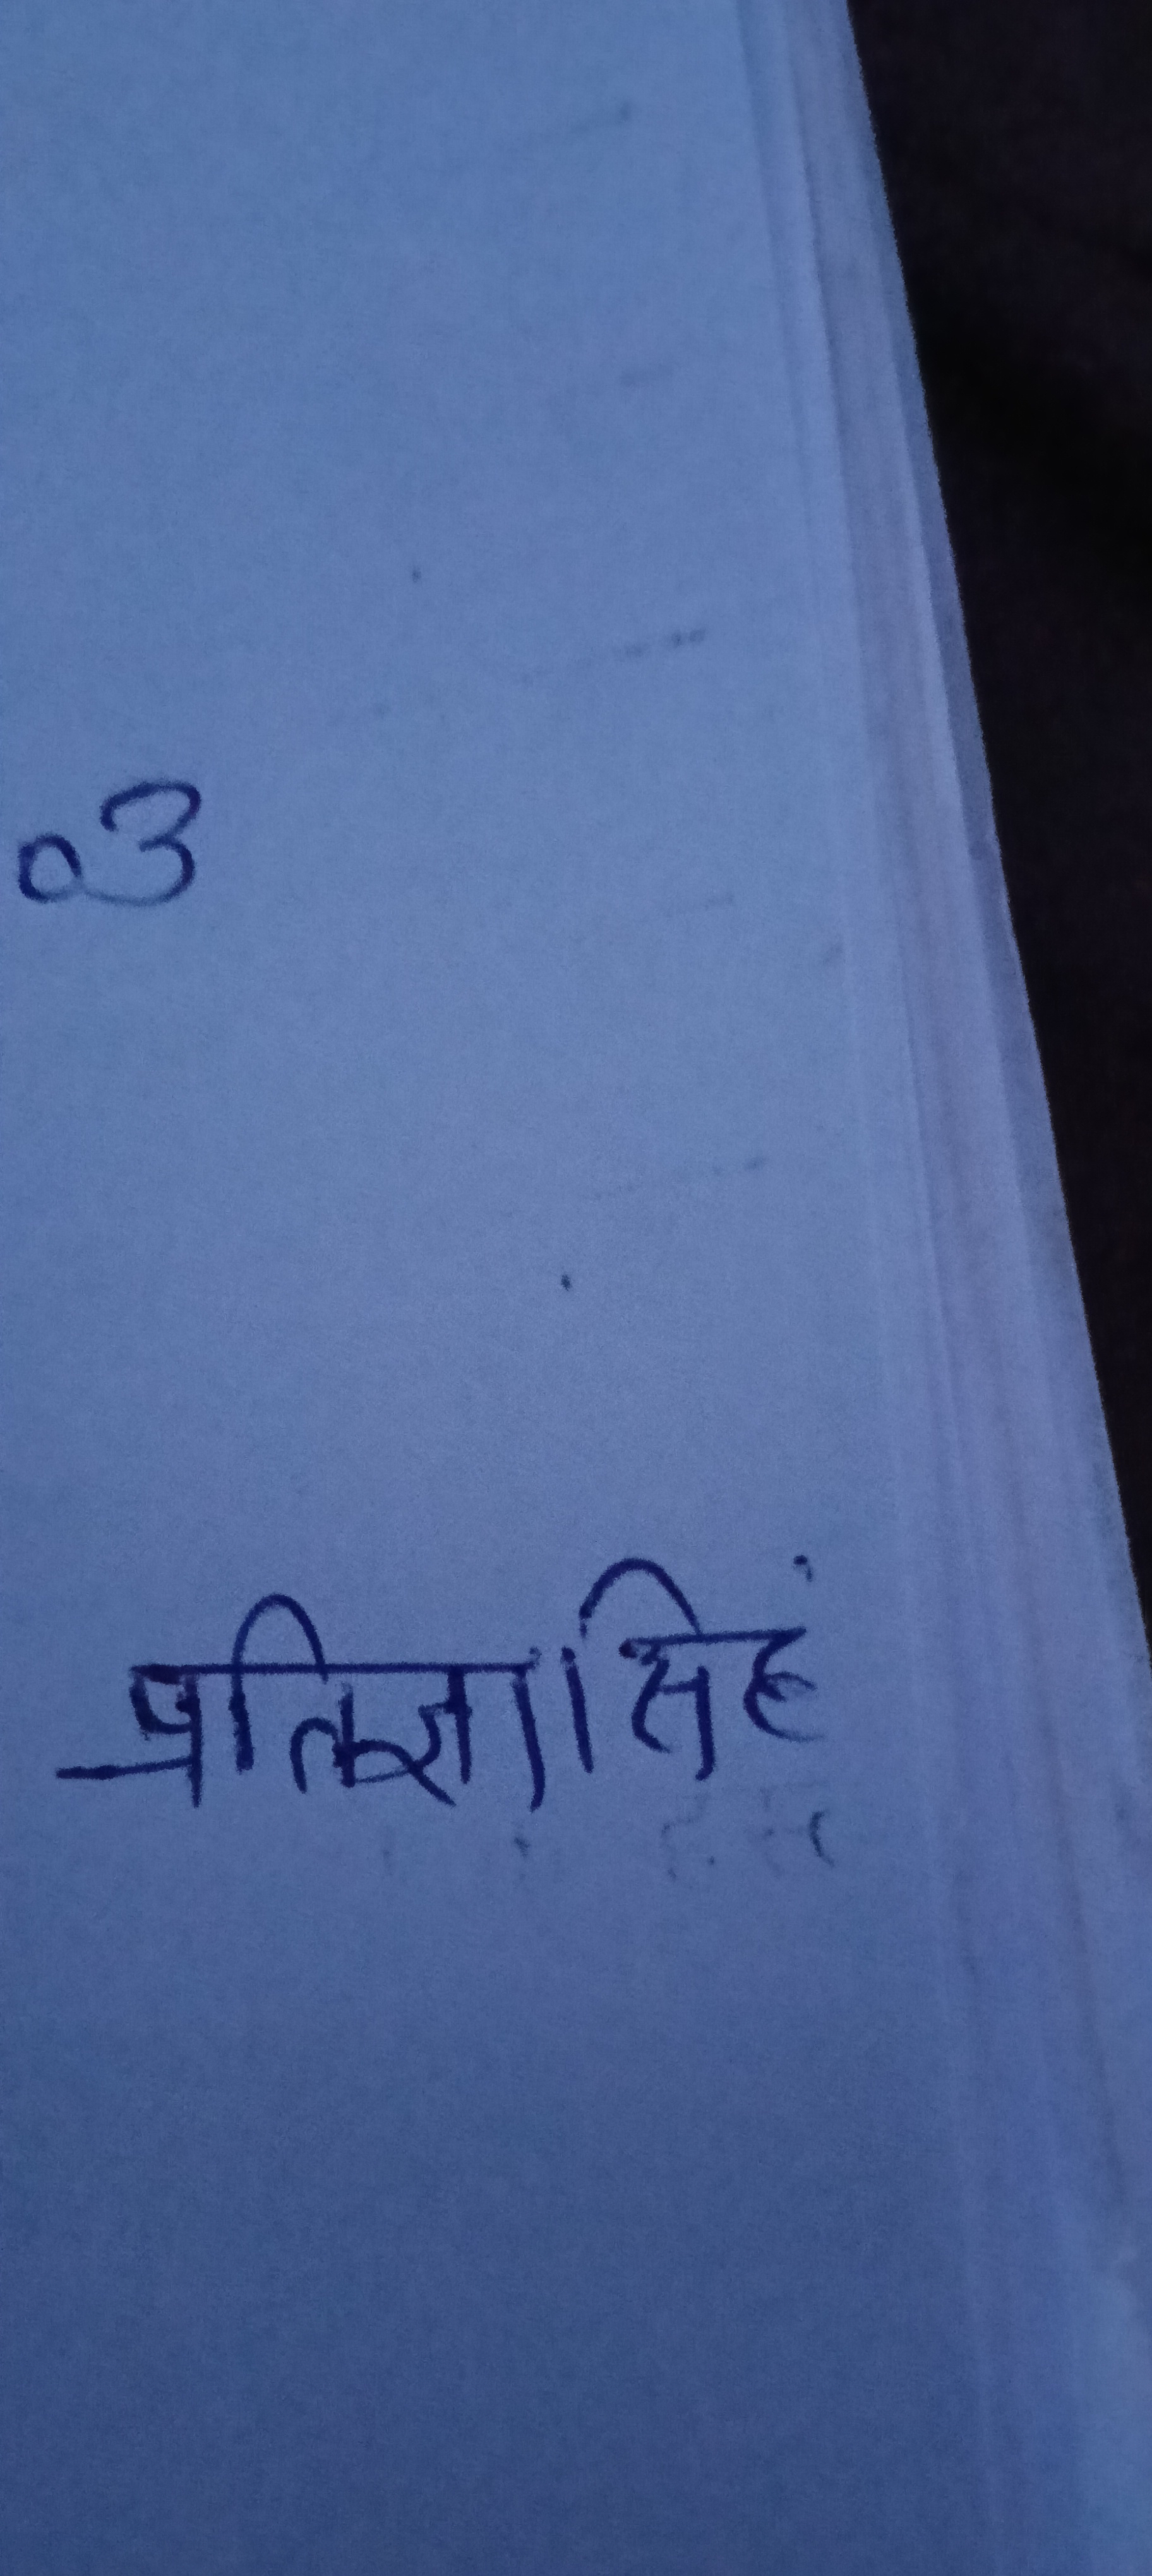 03
प्रतिज्ञा सिहं